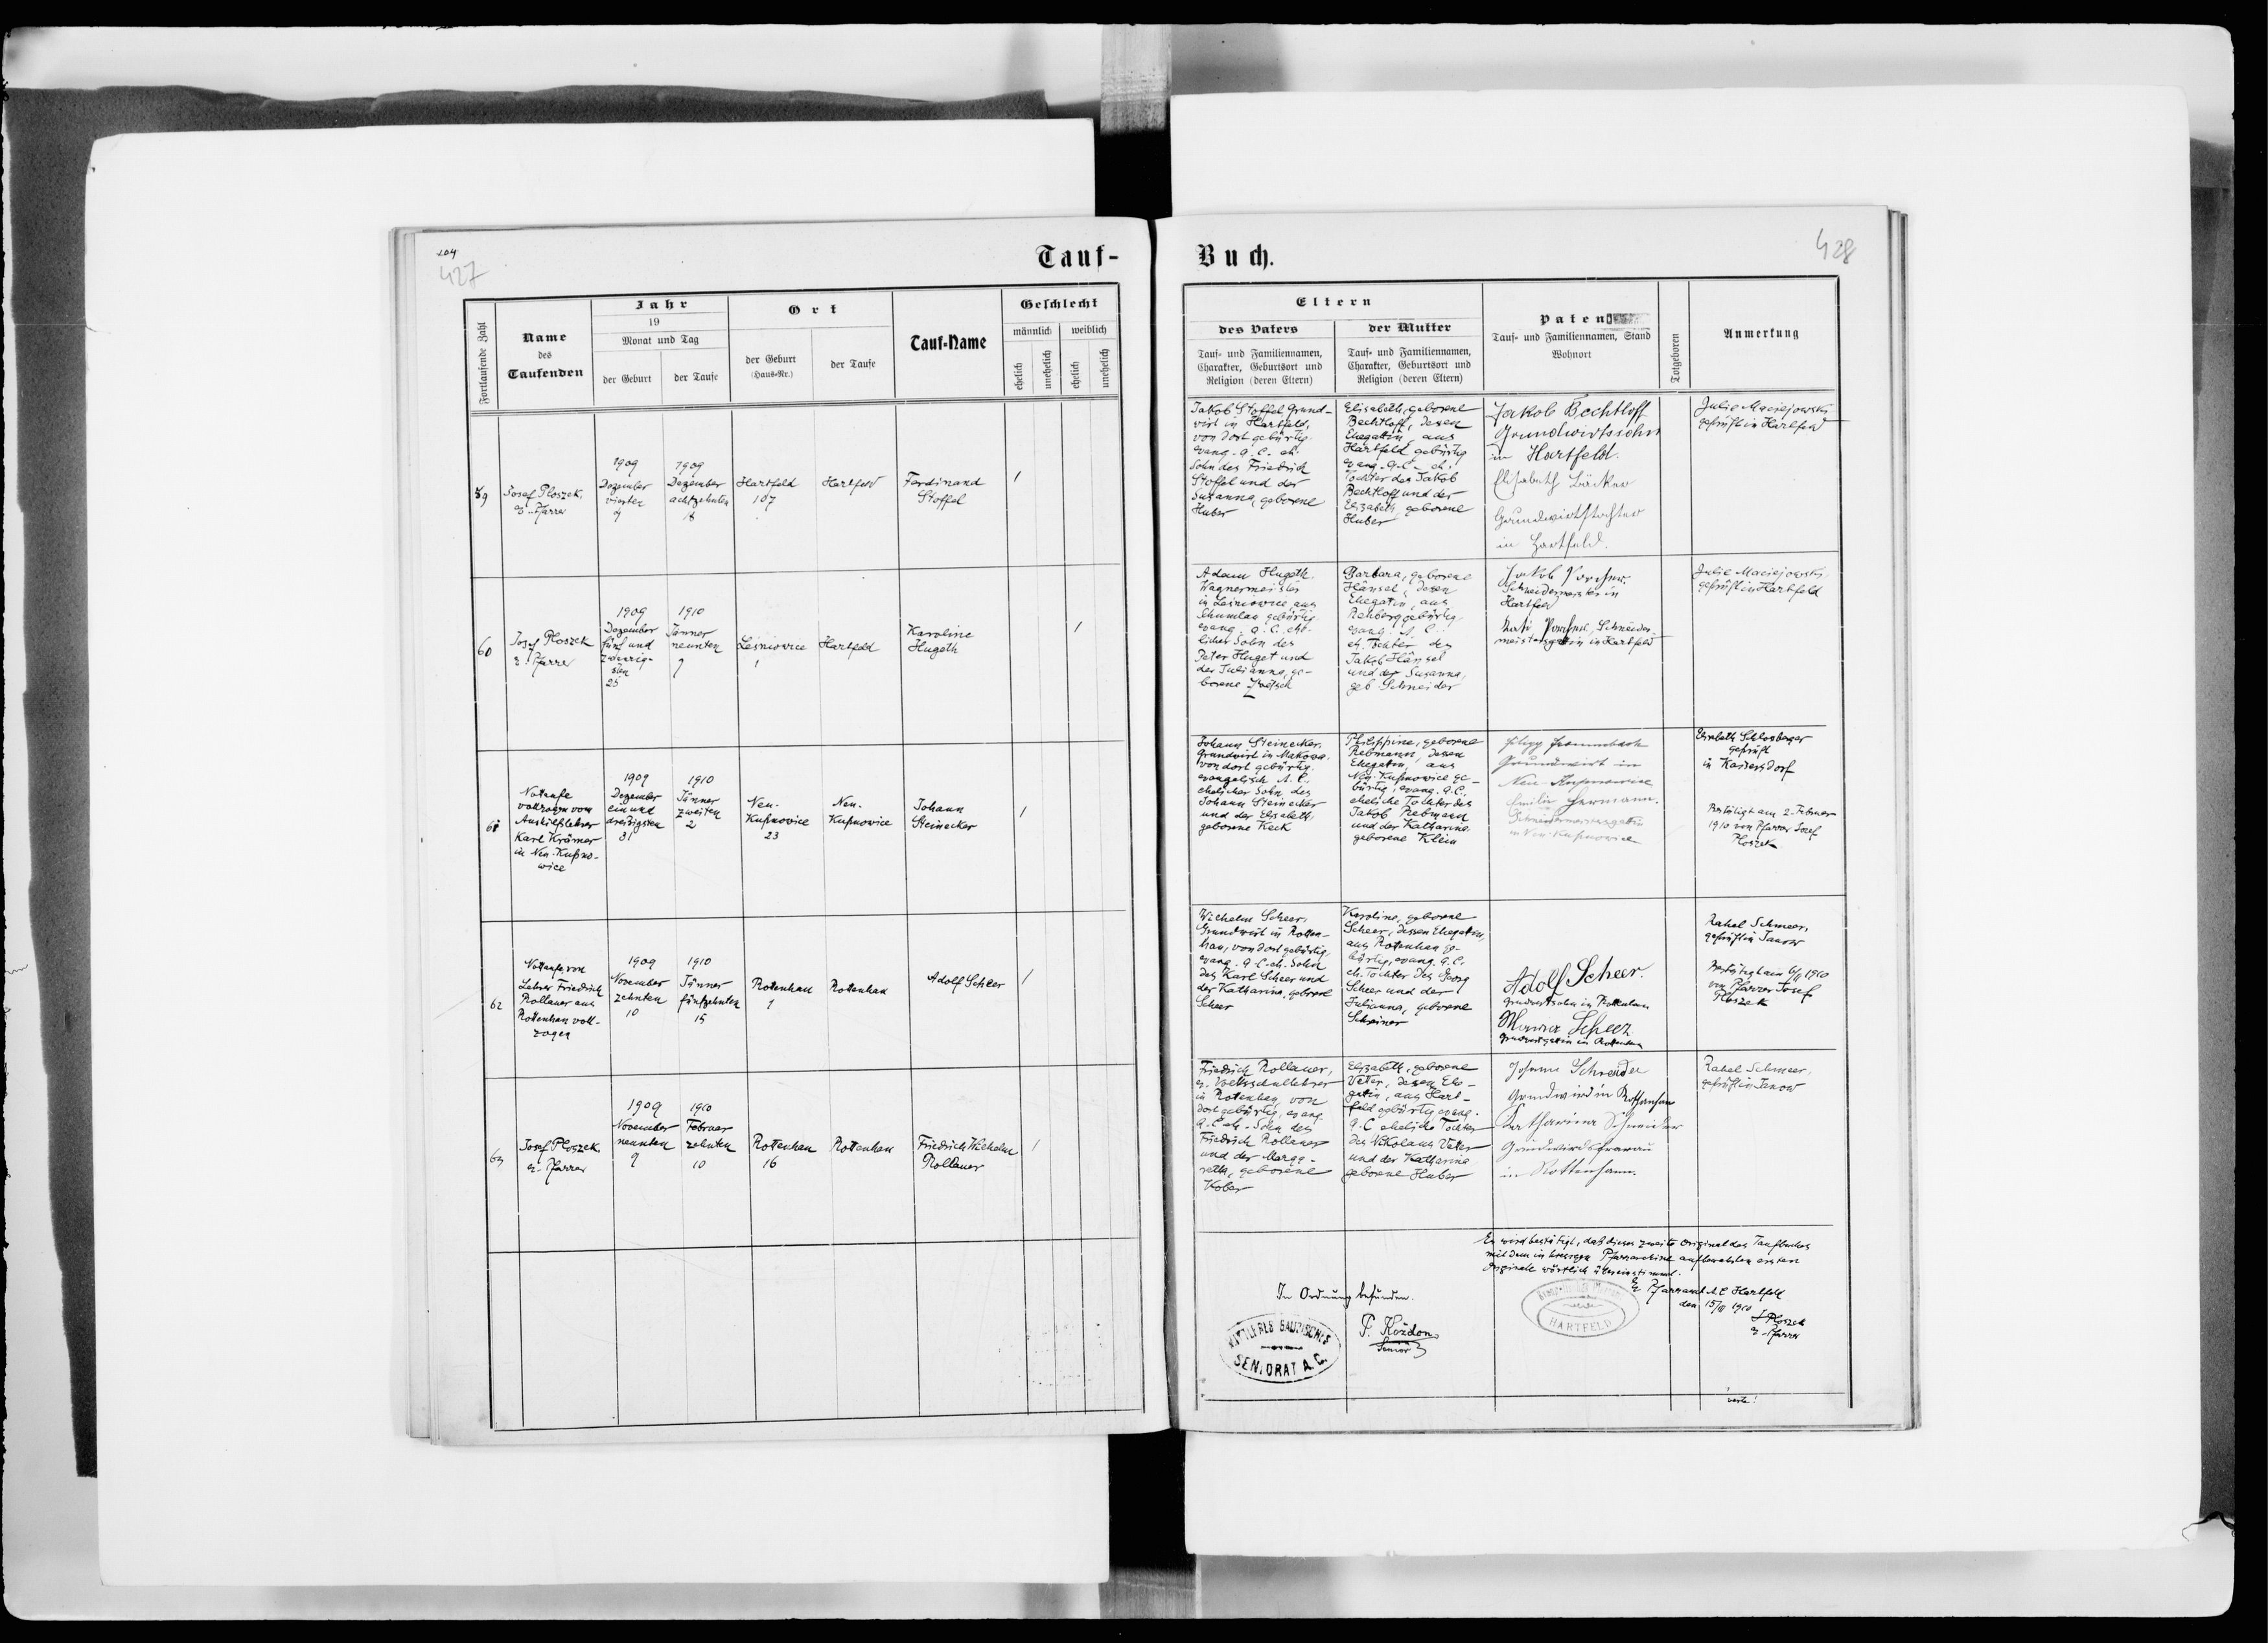 204
427
Tauf-
Fortlaufende Zahl
Name
des
Taufenden
Jahr
19
Monat und Tag
der Geburt
der Taufe
Ort
der Geburt
(Haus-Nr.)
der Taufe
Tauf-Name
Geschlecht
männlich
weiblich
ehelich
unehelich
ehelich
unehelich
59
Josef Ploszek,
ev. Pfarrer
1909
Dezember
vierten
4
1909
Dezember
achtzehnten
18
Hartfeld
107
Hartfeld
Ferdinand
Stoffel
1
60
Josef Ploszek
ev. Pfarrer
1909
Dezember
fünf und
zwanzig-
sten
25
1910
Jänner
neunten
9
Leśniowice
1
Hartfeld
Karoline
Hugeth
1
61
Nottaufe
vollzogen vom
Aushilfslehrer
Karl Krämer
in Neu-Kupno-
wice
1909
Dezember
ein und
dreißigsten
31
1910
Jänner
zweiten
2
Neu-
Kupnowice
23
Neu-
Kupnowice
Johann
Steinecker
1
62
Nottaufe von
Lehrer Friedrich
Rollauer aus
Rottenhan voll-
zogen
1909
November
zehnten
10
1910
Jänner
fünfzehnten
15
Rottenhan
1
Rottenhan
Adolf Scheer
1
63
Josef Ploszek,
ev. Pfarrer
1909
November
neunten
9
1910
Februar
zehnten
10
Rottenhan
16
Rottenhan
Friedrich Wilhelm
Rollauer
1
Buch.
428
Eltern
des Vaters
Tauf- und Familiennamen,
Charakter, Geburtsort und
Religion (deren Eltern)
der Mutter
Tauf- und Familiennamen,
Charakter, Geburtsort und
Religion (deren Eltern)
Paten
Tauf- und Familiennamen, Stand
Wohnort
Totgeboren
Anmerkung
Jakob Stoffel, Grund-
wirt in Hartfeld,
von dort gebürtig,
evang. A. C. eh.
Sohn des Friedrich
Stoffel und der
Susanna, geborene
Huber
Elisabeth, geborene
Bechtloff, dessen
Ehegattin, aus
Hartfeld gebürtig
evang. A. C. eh.
Tochter des Jakob
Bechtloff und der
Elisabeth, geborene
Huber
Jakob Bechtloff
Grundwirtssohn
in Hartfeld.
Elisabeth Bäcker
Grundwirtstochter
in Hartfeld.
Julie Maciejowski
geprüft in Hartfeld
Adam Hugeth
Wagnermeister
in Leśniowice, aus
Schumlau gebürtig
evang. A. C. ehe-
licher Sohn des
Peter Huget und
der Julianna, ge-
borene
Barbara, geborene
Hänsel, dessen
Ehegattin, aus
Rehberg gebürtig,
evang. A. C.
eh. Tochter des
Jakob Hänsel
und der Susanna,
geb. Schneider
Jakob
Schneidermeister in
Hartfeld
Schneider-
meistersgattin in Hartfeld
Julie Maciejowski,
geprüft in Hartfeld
Johann Steinecker,
Grundwirt in Makowa,
von dort gebürtig,
evangelisch A. C.,
ehelicher Sohn des
Johann Steinecker
und der Elisabeth,
geborene Keck
Philippine, geborene
Rebmann, dessen
Ehegattin, aus
Neu-Kupnowice ge-
bürtig, evang. A. C.,
eheliche Tochter des
Jakob Rebmann
und der Katharina,
geborene Klein
Filipp
Grundwirt in
Neu Kupnowice
Emilie Hermann.
in Neu-Kupnowice
Elisabeth Schlosberger
geprüft
in Kaisersdorf
Bestätigt am 2. Februar
1910 von Pfarrer Josef
Ploszek
Wilhelm Scheer,
Grundwirt in Rotten-
han, von dort gebürtig,
evang. A. C. eh. Sohn
des Karl Scheer und
der Katharina, geborene
Scheer
Karoline, geborene
Scheer, dessen Ehegattin,
aus Rottenhan ge-
bürtig, evang. A. C.
eh. Tochter des Georg
Scheer und der
Julianna, geborene
Schreiner
Adolf Scheer.
Grundwirtssohn in Rottenhan
Scheer
Grundwirtsgattin in Rottenhan
Rahel Schmeer,
geprüft in Janow
Bestätigt am 6/II 1910
von Pfarrer Josef
Ploszek
Friedrich Rollauer,
ev. Volksschullehrer
in Rottenhan, von
dort gebürtig, evang.
A. C. eh. Sohn des
Friedrich Rollauer
und der Marga-
reth, geborene
Kober
Elisabeth, geborene
Vetter, dessen Ehe-
gattin, aus Hart-
feld gebürtig, evang.
A. C. eheliche Tochter
des Nikolaus Vetter
und der Katharina
geborene Huber
Johann Schreider
Grundwird in Rothanhan
Katharina Schneider
Grundwirdsfrau
in Rottenhann.
Rahel Schmeer,
geprüft in Janow
Es wird bestätigt, daß dieses zweite Original des Taufbuches
mit dem in hiesigen Pfarrarchive aufbewahrten ersten
Originale wörtlich übereinstimmt.
Ev. Pfarramt A. C. Hartfeld
den 15/III 1910
J. Ploszek
ev. Pfarrer
HARTFELD
In Ordnung befunden.
MITTLERES GALIZISCHES
SENIORAT A. C.
P. Kożdon
Senior
verte!